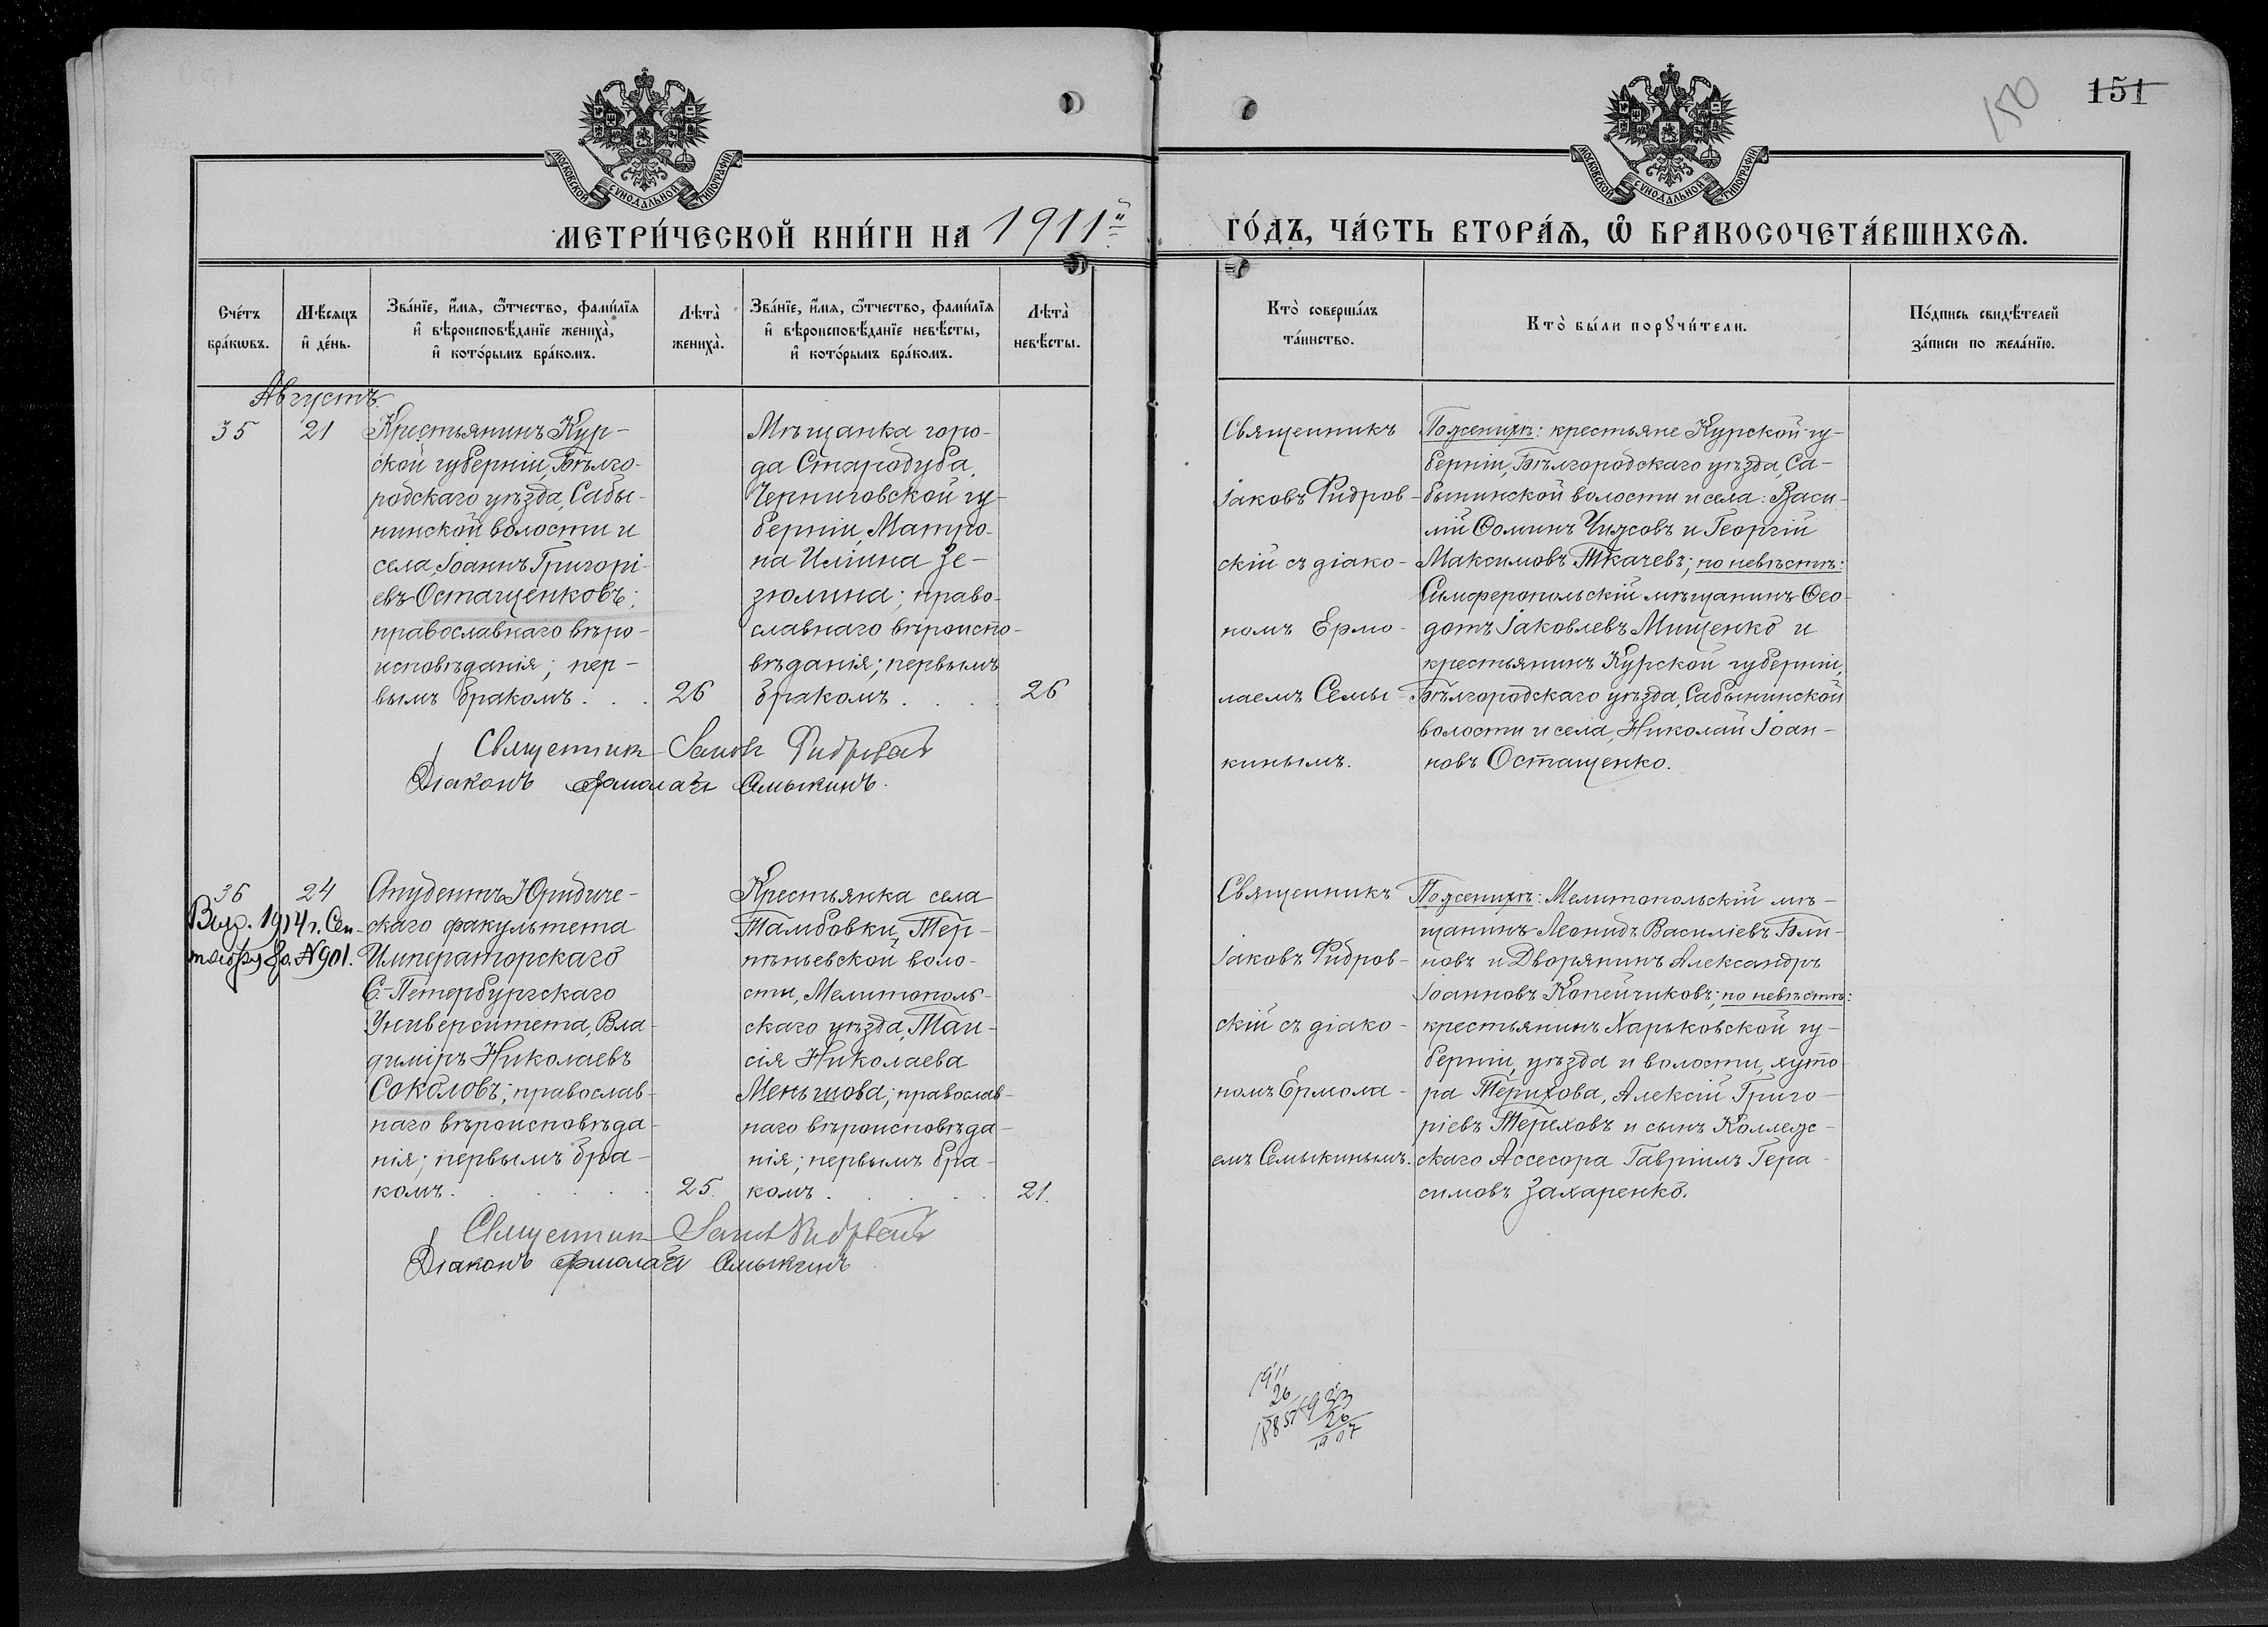 150
151
МОСКОВСКОЙ СУНОДАЛЬНОЙ ТИПОГРАФІИ
МОСКОВСКОЙ СУНОДАЛЬНОЙ ТИПОГРАФІИ
МЕТРИ́ЧЕСКОЙ КНИ́ГИ НА 1911й
ГО́ДЪ, ЧА́СТЬ ВТОРА́Ѧ, Ѽ БРАКОСОЧЕТА́ВШИХСѦ.
Сче́тъ
бра́кѡвъ.
Мѣ́сяцъ
и҆ де́нь.
Зва́нїе, и҆́мя, ѻ҆́тчество, фами́лїя
и҆ вѣроисповѣ́данїе жениха̀,
и҆ кото́рымъ бра́комъ.
Лѣта̀
жениха̀.
Зва́нїе, и҆́мя, ѻ҆́тчество, фами́лїя
и҆ вѣроисповѣ́данїе невѣ́сты,
и҆ кото́рымъ бра́комъ.
Лѣта̀
невѣ́сты.
Кто̀ соверша́лъ
та́инство.
Кто̀ бы́ли порꙋчи́тели.
По́дпись свидѣ́телей
за́писи по жела́нїю.
Августъ.
35
21
Крестьянинъ Кур-
ской губерніи, Бѣлго-
родскаго уѣзда, Сабы-
нинской волости и
села, Іоаннъ Григорі-
евъ Остащенковъ;
православнаго вѣро-
исповѣданія; пер-
вымъ бракомъ . . .
26
Мѣщанка горо-
да Стародуба,
Черниговской гу-
берніи, Матро-
на Иліина Зе-
зюлина; право-
славнаго вѣроиспо-
вѣданія; первымъ
бракомъ . . . .
26
Священникъ
Іаковъ Фидров-
скій съ діако-
номъ Ермо-
лаемъ Семы-
кинымъ.
По женихѣ: крестьяне Курской гу-
берніи, Бѣлгородскаго уѣзда, Са-
бынинской волости и села: Васи-
лій Ѳоминъ Чижовъ и Георгій
Максимовъ Ткачевъ; по невѣстѣ:
Симферопольскій мѣщанинъ Ѳео-
дотъ Іаковлевъ Мищенко и
крестьянинъ Курской губерніи,
Бѣлгородскаго уѣзда, Сабынинской
волости и села, Николай Іоан-
новъ Остащенко.
Священникъ Іаковъ Фидровскій
Діаконъ Ермолай Семыкинъ.
36
24
Выд. 1914 г. Сен-
тября 8 д. № 901.
Студентъ Юридиче-
скаго факультета
Императорскаго
С.-Петербургскаго
Университета, Вла-
диміръ Николаевъ
Соколовъ; православ-
наго вѣроисповѣда-
нія; первымъ бра-
комъ . . . . .
25.
Крестьянка села
Тамбовки, Тер-
пѣньевской воло-
сти, Мелитополь-
скаго уѣзда, Таи-
сія Николаева
Меньшова; православ-
наго вѣроисповѣда-
нія; первымъ бра-
комъ . . . .
21.
Священникъ
Іаковъ Фидров-
скій съ діако-
номъ Ермола-
емъ Семыкинымъ.
По женихѣ: Мелитопольскій мѣ-
щанинъ Леонидъ Василіевъ Бли-
новъ и Дворянинъ Александръ
Іоанновъ Копейчиковъ; по невѣстѣ:
крестьянинъ Харьковской гу-
берніи, уѣзда и волости, хуто-
ра Терихова, Алексій Григо-
ріевъ Тереховъ и сынъ Коллеж-
скаго Ассесора Гавріилъ Гера-
симовъ Захаренко.
Священникъ Іаковъ Фидровскій
Діаконъ Ермолай Семыкинъ
1911
26
1885
1933
26
1907